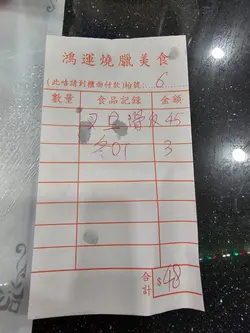 鴻運燒臘美食
(此咭請到櫃面付款)枱號: 6
數量 食品記錄 金額
叉 45
冬OT 3
合計 $48